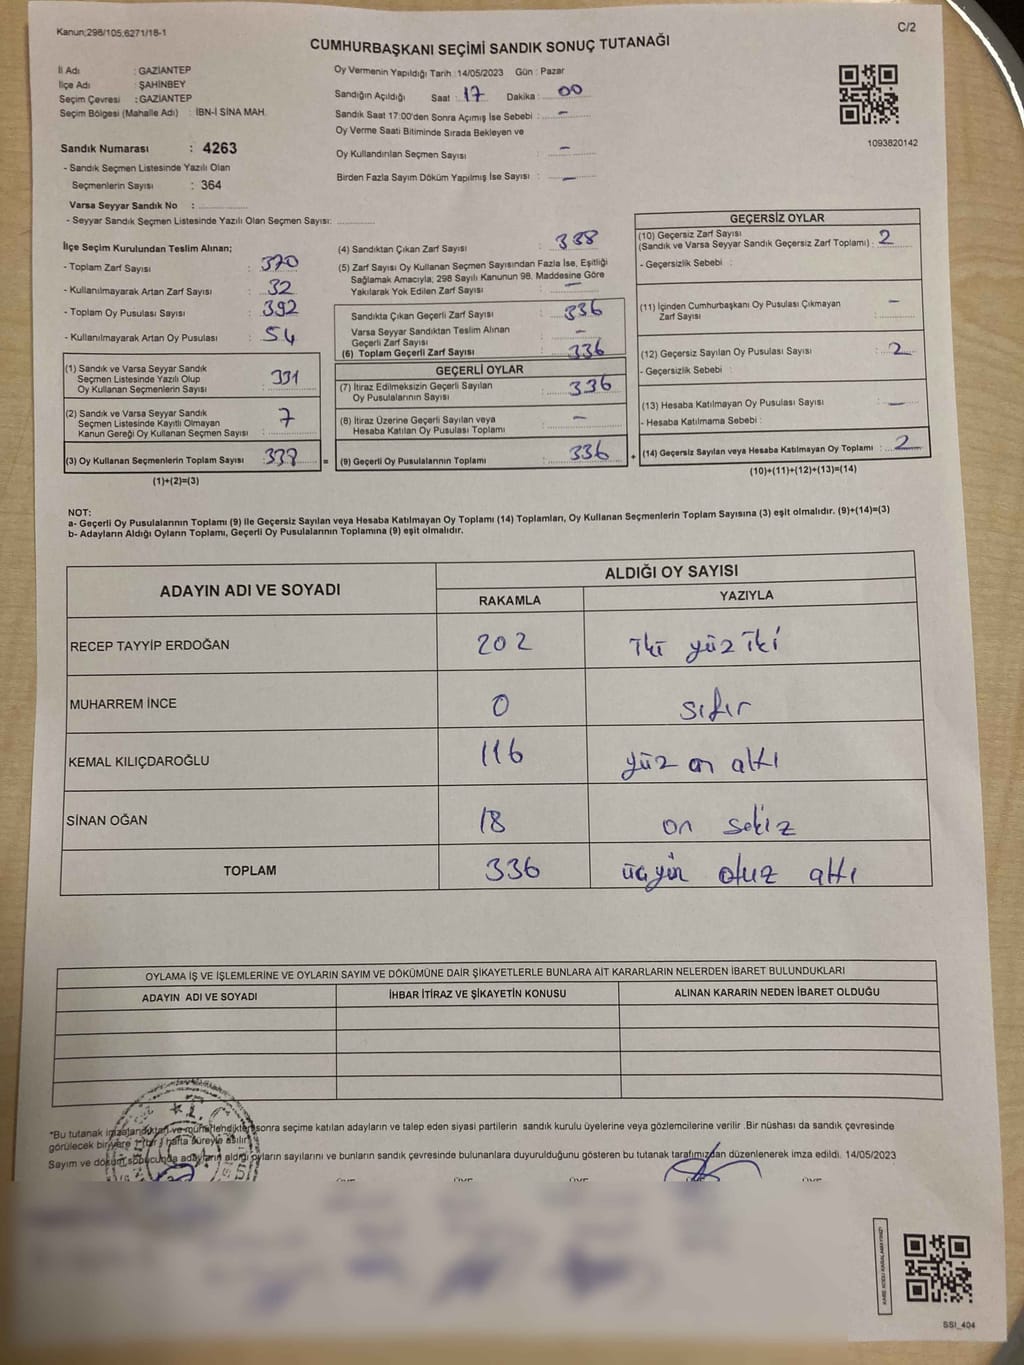 Kanun;298/105;6271/18-1
C/2
CUMHURBAŞKANI SEÇİMİ SANDIK SONUÇ TUTANAĞI
İl Adı : GAZİANTEP
İlçe Adı : ŞAHİNBEY
Seçim Çevresi : GAZİANTEP
Seçim Bölgesi (Mahalle Adı) : İBN-İ SİNA MAH.
Sandık Numarası : 4263
- Sandık Seçmen Listesinde Yazılı Olan
Seçmenlerin Sayısı : 364
Varsa Seyyar Sandık No :
- Seyyar Sandık Seçmen Listesinde Yazılı Olan Seçmen Sayısı:
Oy Vermenin Yapıldığı Tarih :14/05/2023 Gün : Pazar
Sandığın Açıldığı Saat : 17 Dakika : 00
Sandık Saat 17:00'den Sonra Açımış İse Sebebi : -
Oy Verme Saati Bitiminde Sırada Bekleyen ve
Oy Kullandırılan Seçmen Sayısı : -
Birden Fazla Sayım Döküm Yapılmış İse Sayısı : -
1093820142
İlçe Seçim Kurulundan Teslim Alınan;
- Toplam Zarf Sayısı : 370
- Kullanılmayarak Artan Zarf Sayısı : 32
- Toplam Oy Pusulası Sayısı : 392
- Kullanılmayarak Artan Oy Pusulası : 54
(1) Sandık ve Varsa Seyyar Sandık
Seçmen Listesinde Yazılı Olup
Oy Kullanan Seçmenlerin Sayısı : 331
(2) Sandık ve Varsa Seyyar Sandık
Seçmen Listesinde Kayıtlı Olmayan
Kanun Gereği Oy Kullanan Seçmen Sayısı : 7
(3) Oy Kullanan Seçmenlerin Toplam Sayısı : 338
(1)+(2)=(3)
(4) Sandıktan Çıkan Zarf Sayısı : 338
(5) Zarf Sayısı Oy Kullanan Seçmen Sayısından Fazla İse, Eşitliği
Sağlamak Amacıyla; 298 Sayılı Kanunun 98. Maddesine Göre
Yakılarak Yok Edilen Zarf Sayısı : -
Sandıkta Çıkan Geçerli Zarf Sayısı : 336
Varsa Seyyar Sandıktan Teslim Alınan
Geçerli Zarf Sayısı : -
(6) Toplam Geçerli Zarf Sayısı : 336
GEÇERLİ OYLAR
(7) İtiraz Edilmeksizin Geçerli Sayılan
Oy Pusulalarının Sayısı : 336
(8) İtiraz Üzerine Geçerli Sayılan veya
Hesaba Katılan Oy Pusulası Toplamı : -
= (9) Geçerli Oy Pusulalarının Toplamı : 336 +
GEÇERSİZ OYLAR
(10) Geçersiz Zarf Sayısı
(Sandık ve Varsa Seyyar Sandık Geçersiz Zarf Toplamı) : 2
- Geçersizlik Sebebi :
(11) İçinden Cumhurbaşkanı Oy Pusulası Çıkmayan
Zarf Sayısı : -
(12) Geçersiz Sayılan Oy Pusulası Sayısı : 2
- Geçersizlik Sebebi :
(13) Hesaba Katılmayan Oy Pusulası Sayısı : -
- Hesaba Katılmama Sebebi :
(14) Geçersiz Sayılan veya Hesaba Katılmayan Oy Toplamı : 2
(10)+(11)+(12)+(13)=(14)
NOT:
a- Geçerli Oy Pusulalarının Toplamı (9) ile Geçersiz Sayılan veya Hesaba Katılmayan Oy Toplamı (14) Toplamları, Oy Kullanan Seçmenlerin Toplam Sayısına (3) eşit olmalıdır. (9)+(14)=(3)
b- Adayların Aldığı Oyların Toplamı, Geçerli Oy Pusulalarının Toplamına (9) eşit olmalıdır.
ADAYIN ADI VE SOYADI ALDIĞI OY SAYISI
RAKAMLA YAZIYLA
RECEP TAYYİP ERDOĞAN 202 iki yüz iki
MUHARREM İNCE 0 sıfır
KEMAL KILIÇDAROĞLU 116 yüz on altı
SİNAN OĞAN 18 on sekiz
TOPLAM 336 üçyüz otuz altı
OYLAMA İŞ VE İŞLEMLERİNE VE OYLARIN SAYIM VE DÖKÜMÜNE DAİR ŞİKAYETLERLE BUNLARA AİT KARARLARIN NELERDEN İBARET BULUNDUKLARI
ADAYIN ADI VE SOYADI İHBAR İTİRAZ VE ŞİKAYETİN KONUSU ALINAN KARARIN NEDEN İBARET OLDUĞU
*Bu tutanak imzalandıktan ve mühürlendikten sonra seçime katılan adayların ve talep eden siyasi partilerin sandık kurulu üyelerine veya gözlemcilerine verilir .Bir nüshası da sandık çevresinde
görülecek bir yere 1 (bir) hafta süreyle asılır.
Sayım ve döküm sonucunda adayların aldığı oyların sayılarını ve bunların sandık çevresinde bulunanlara duyurulduğunu gösteren bu tutanak tarafımızdan düzenlenerek imza edildi. 14/05/2023
SSI_404